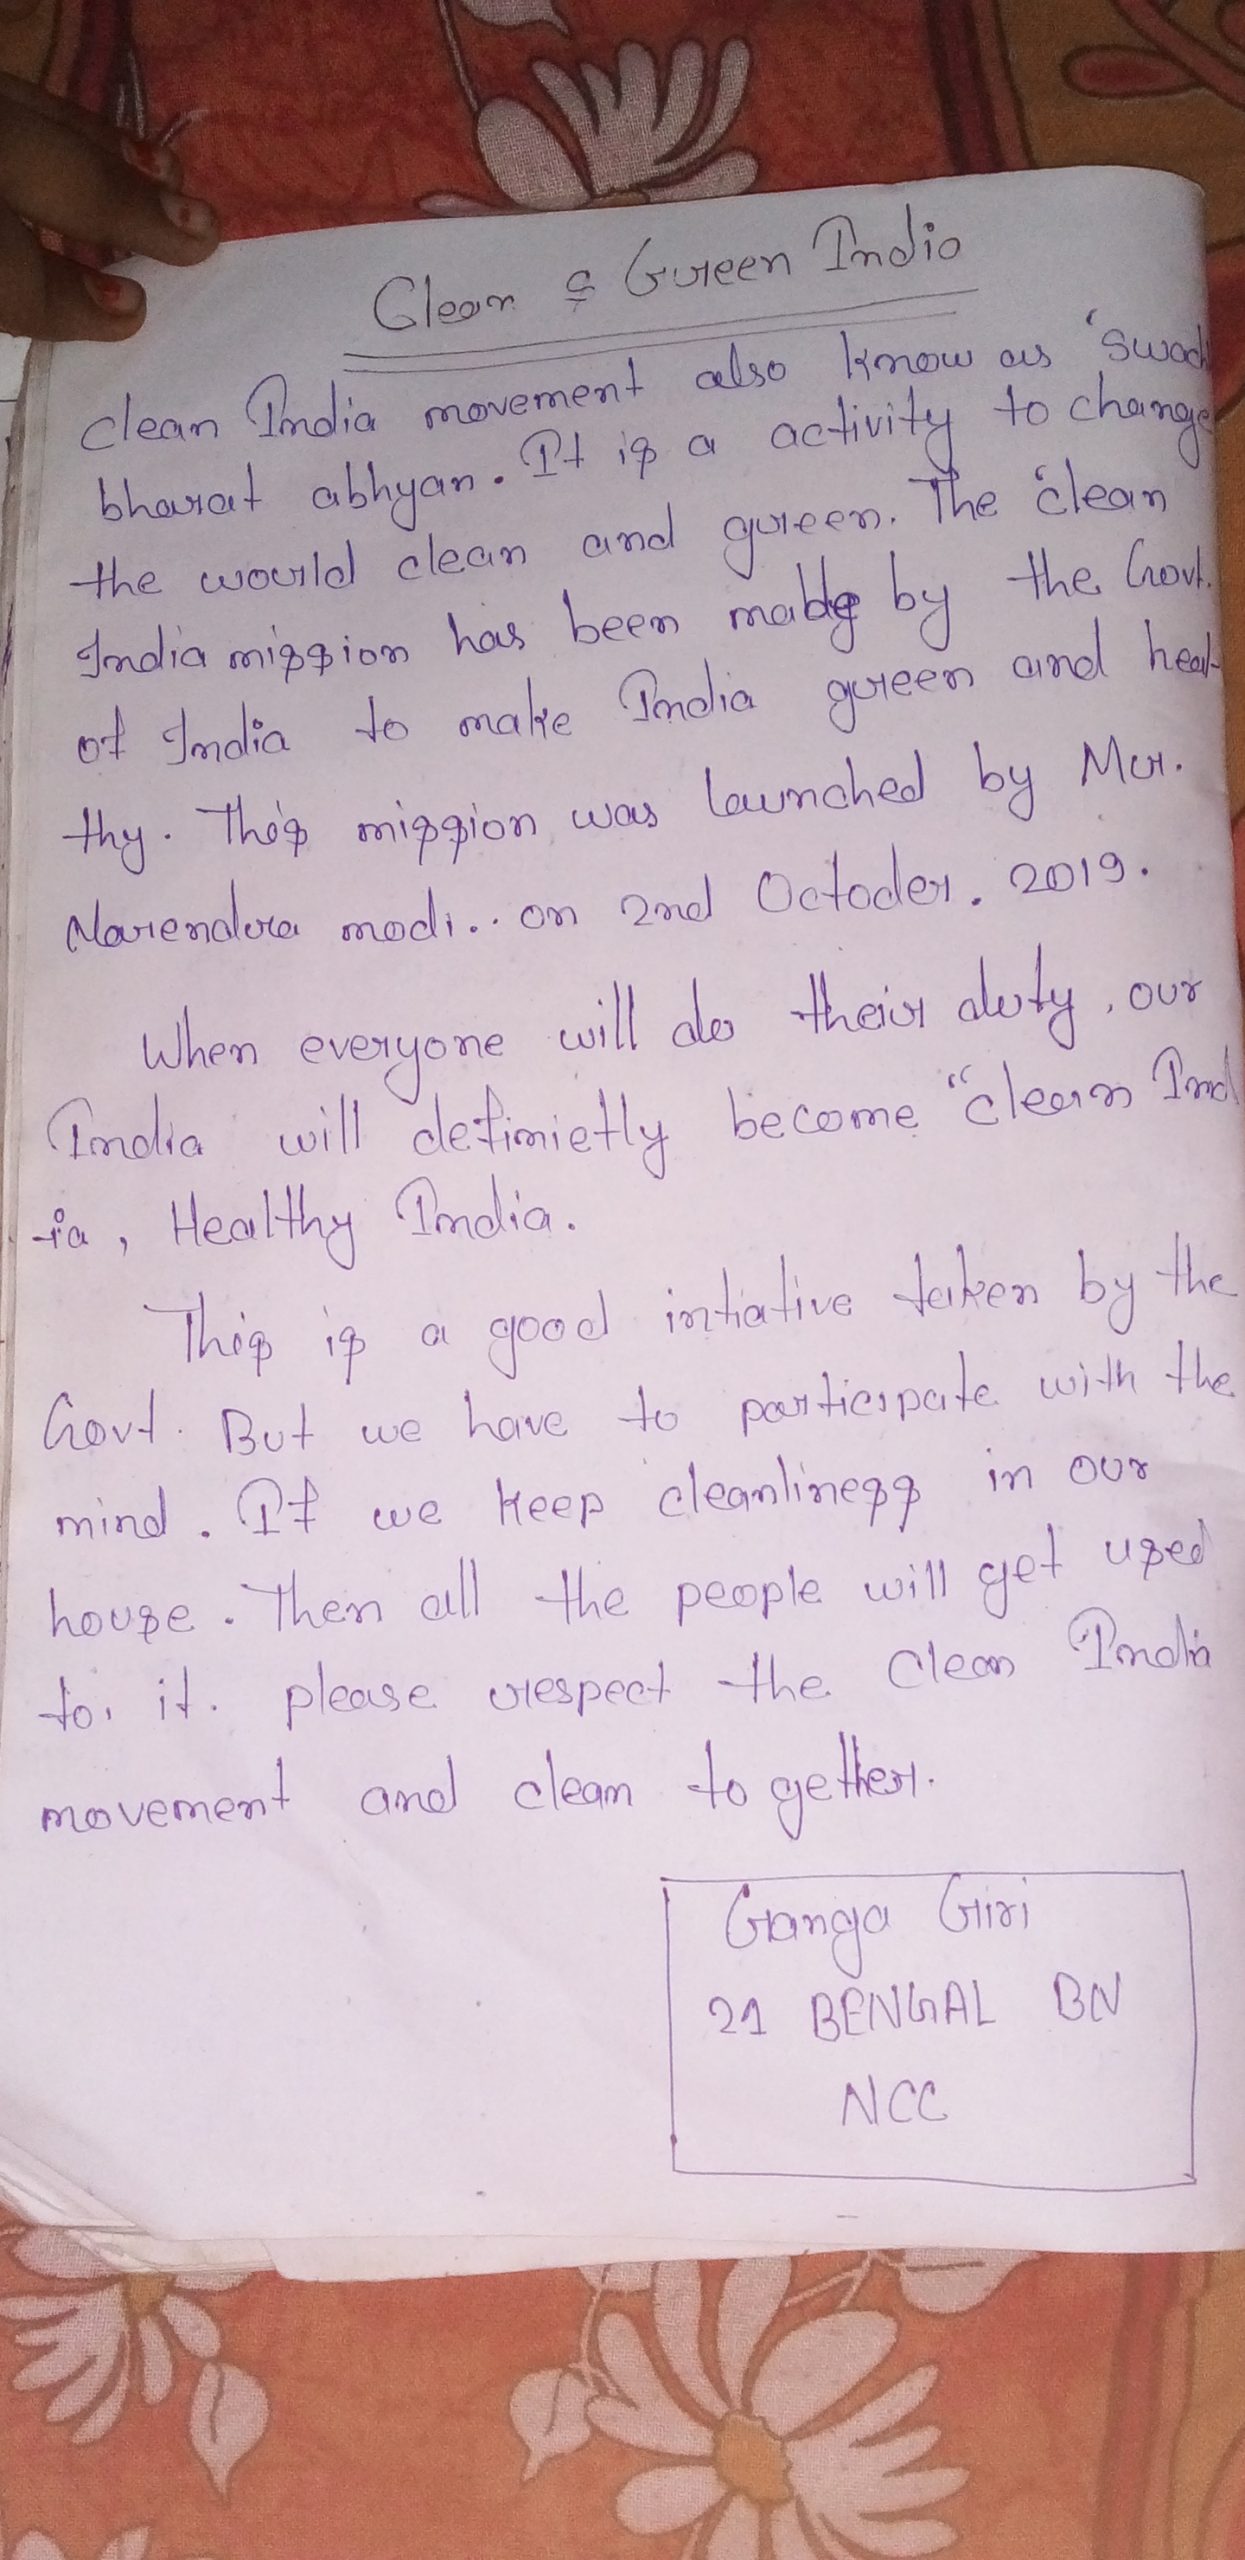 Clean & Green India
clean India movement also know as 'swach
bharat abhyan. It is a activity to change
the world clean and green. The "clean
India mission has been made by the Govt.
of India to make India green and heal-
thy. This mission was launched by Mr.
Narendra modi.. on 2nd Octoder. 2019.
When everyone will do their duty, our
India will definietly become "clean Ind
ia, Healthy India.
This is a good intiative taken by the
Govt. But we have to participate with the
mind. If we keep cleanliness in our
house. Then all the people will get used
to. it. please respect the clean India
movement and clean to gether.
Ganga Giri
21 BENGAL BN
NCC